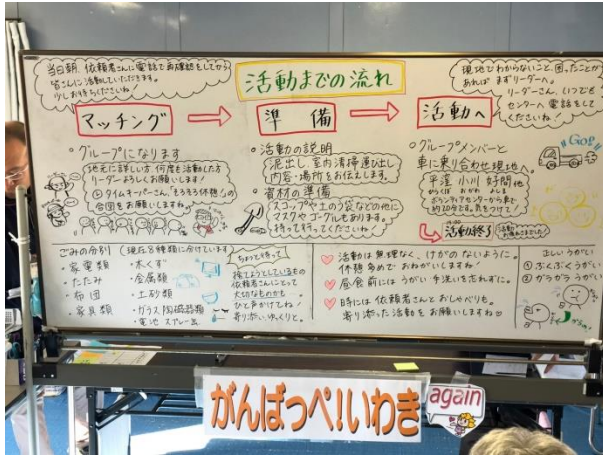 当日朝、依頼者さんに電話で再確認をしてから
皆さんに活動していただきます。
少しお待ちくださいね!
活動までの流れ
現地でわからないこと、困ったことが
あれば まずリーダーへ。
リーダーさん、いつでも
センターへ 電話をして
くださいね!
マッチング
準備
活動へ
・グループになります
地元に詳しい方、何度も活動した方
リーダーよろしくお願いします!
タイムキーパーさん、「そろそろ休憩!」の
合図をお願いしますね。
・活動の説明
泥出し、室内清掃、運び出し
内容・場所をお伝えします。
・資材の準備
スコップや土のう袋などの他に
マスクやゴーグルもあります。
持って行ってくださいね!
・グループメンバーと
車に乗り合わせ現地へ。
GO!!
平窪 小川 好間 他
ひらくぼ おがわ よしま
ボランティアセンターからまで
約20分です。気をつけて!
活動終了
活動お疲れさまでした
ごみの分別(現在8種類に分けています)
・家電類
・たたみ
・布団
・家具類
・木くず
・金属類
・土砂類
・ガラス陶磁器類
・電池 スプレー缶
ちょっと待って
捨てようとしているもの
依頼者さんにとって
大切なものかも。
ひと声かけてね!
寄り添い、ゆっくりと。
活動は無理なく、けがのないように。
休憩多めでおねがいしますね!
昼食前にはうがい手洗いを忘れずに。
時には依頼者さんとおしゃべりも。
寄り添った活動をお願いしますね
正しいうがい
①ぶくぶくうがい
②ガラガラうがい
がんばっぺ!いわき
again